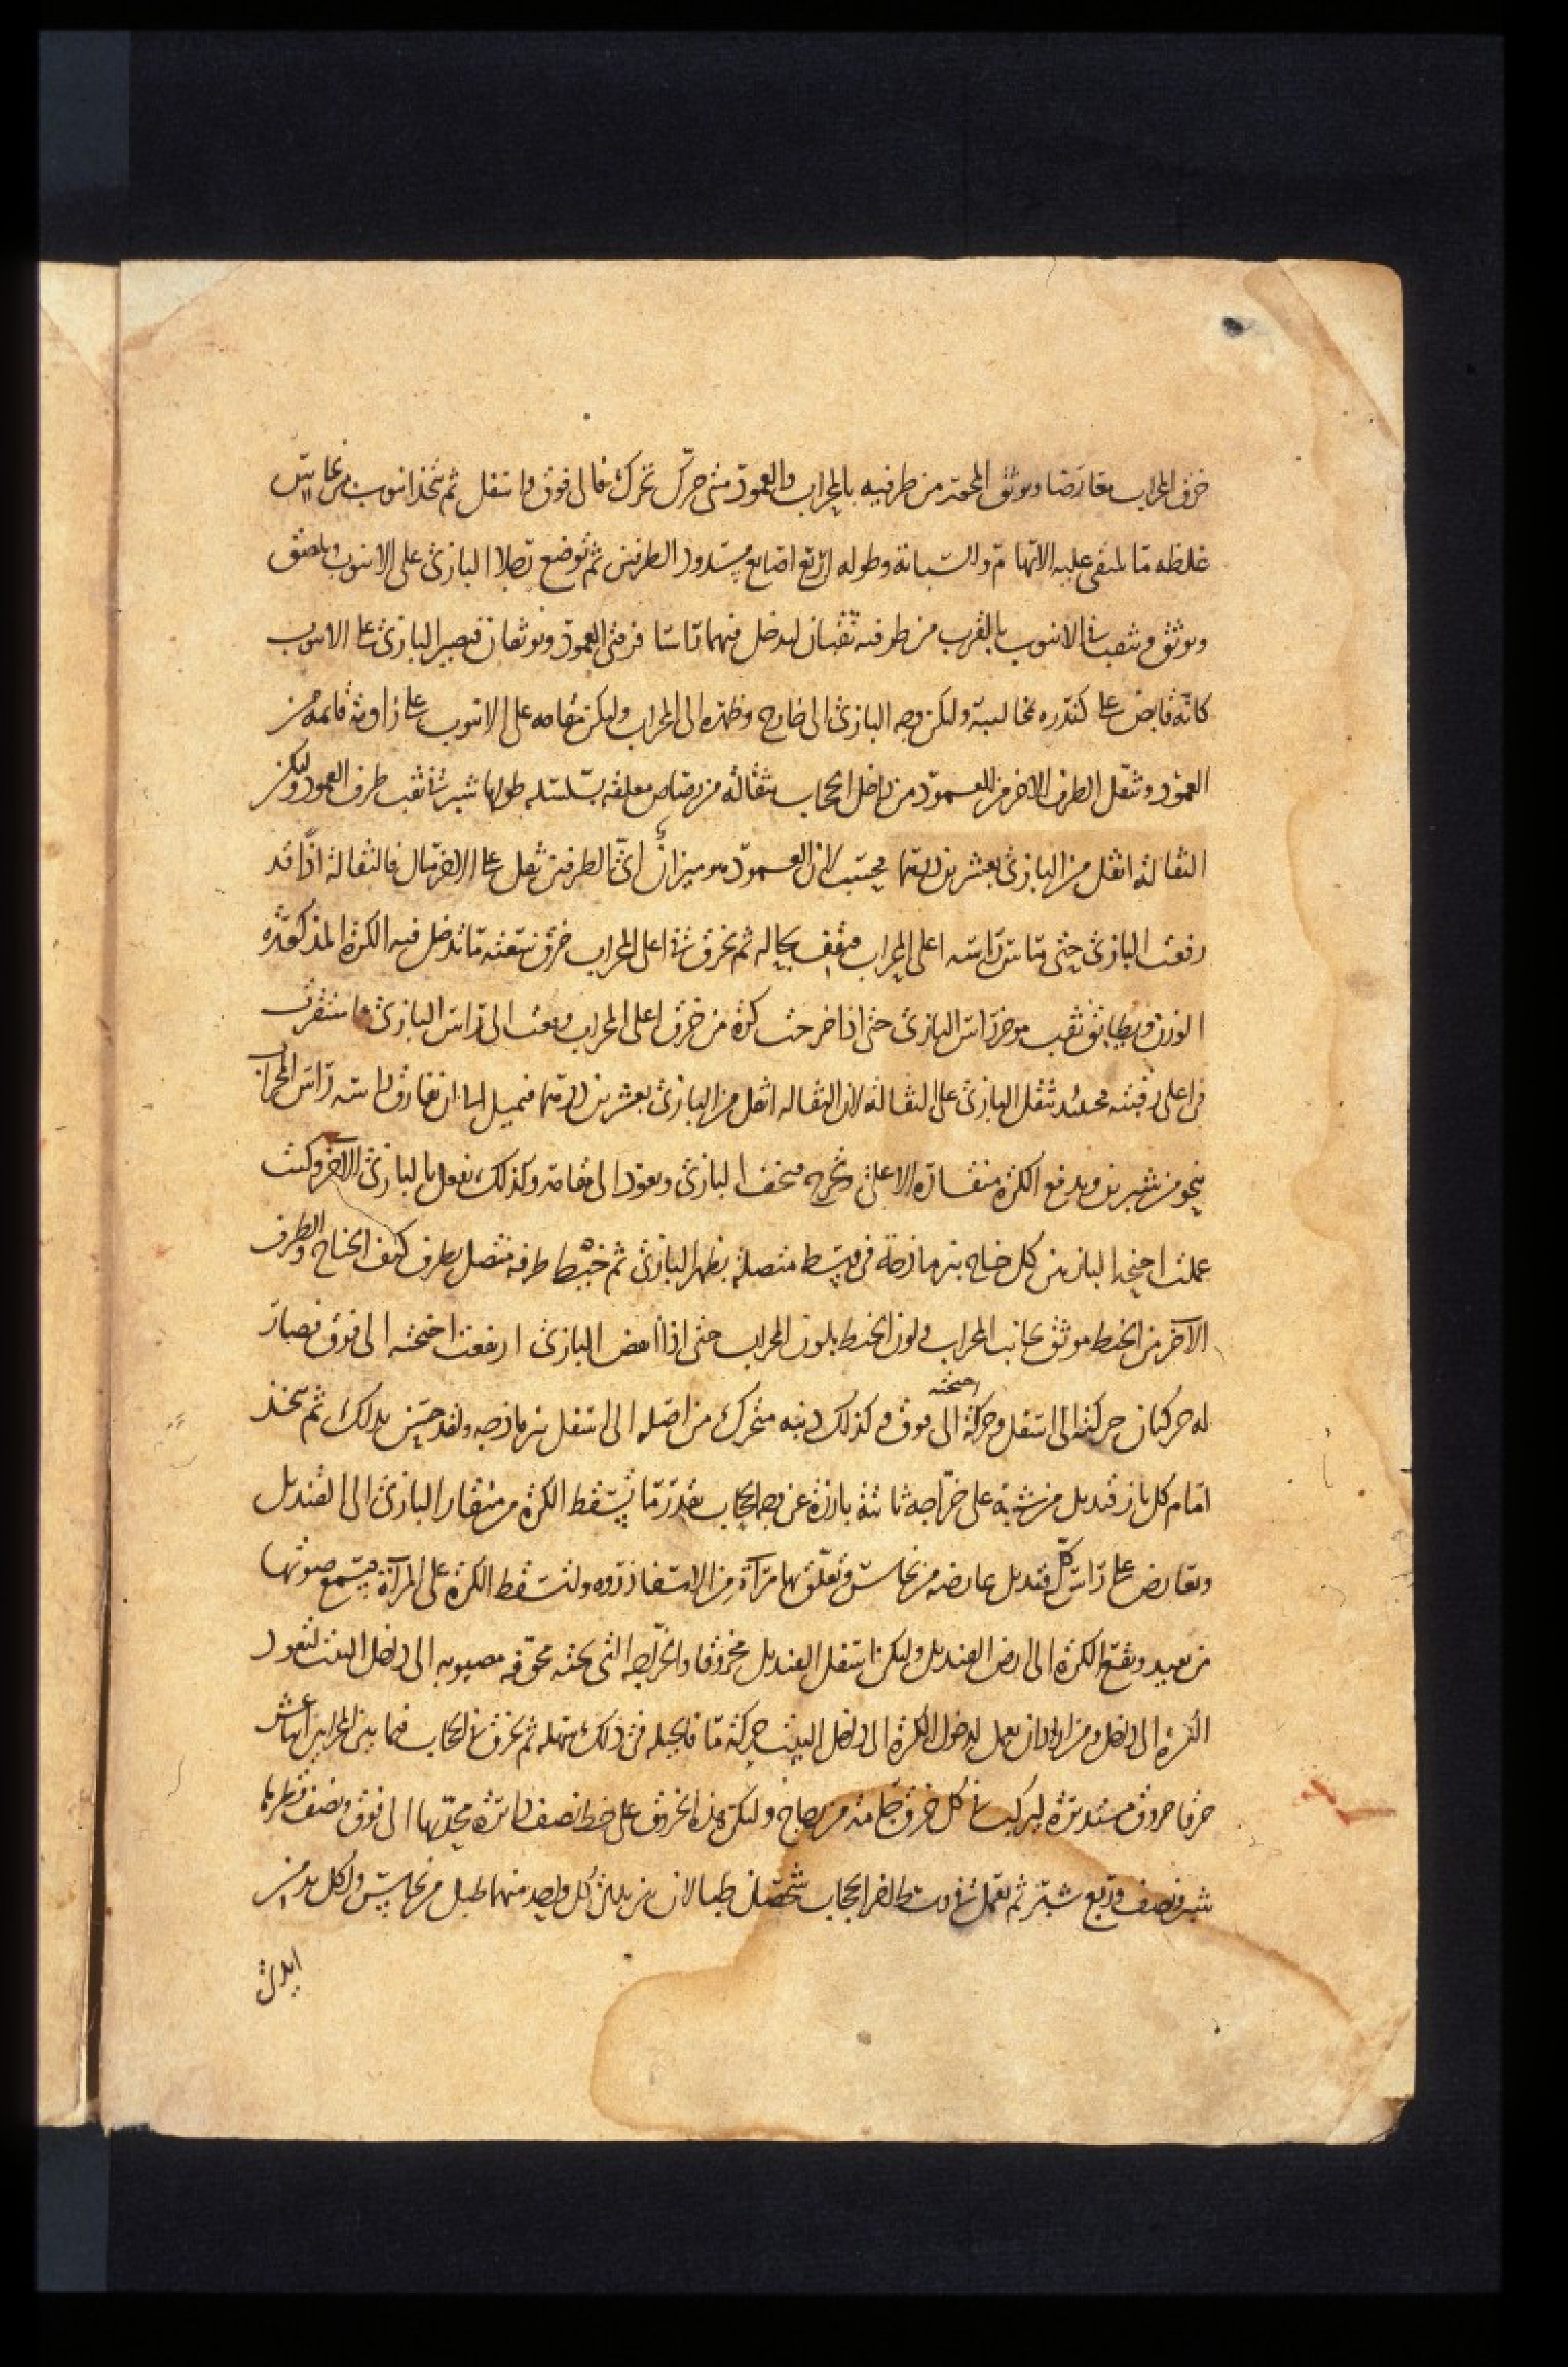 خرق المحراب معارضا ويوثق المحور من طرفيه بالمحراب والعمود متى حرك تحرك فالى فوق واسفل ثم يتخذ انبوب من نحاس
غلظه ما تلتقى عليه الابهام والسبابة وطوله اربع اصابع مسدود الطرفين ثم توضع رجلا البازى على الانبوب ويلصق
ويوثق ويثقب فى الانبوب بالقرب من طرفيه ثقبان ليدخل فيهما راسا قرنى العمود ويوثقان فيصير البازى على الانبوب
كانه قابض على كندره بمخاليبه وليكن وجه البازى الى خارج وظهره الى المحراب وليكن مقامه على الانبوب على زاوية قايمة من
العمود وتثقل الطرف الاخر من العمود من داخل الحجاب بثقالة من رصاص معلقه بسلسله طولها شبر فى ثقب طرف العمود وليكن
الثقالة اثقل من البازى بعشرين درهما بحسب لان العمود هو ميزان اى الطرفين ثقل على الاخر شال فالثقالة اذا قد
رفعت البازى حتى ماس راسه اعلى المحراب فيقف بحاله ثم يخرق فى اعلى المحراب خرق سعته ما تدخل فيه الكرة المذكورة
الوزن ويطابق ثقب موخر راس البازى حتى اذا خرجت كرة من خرق اعلى المحراب وقعت الى راس البازى واستقرت
فى اعلى رقبته فحينئذ تثقل البازى على الثقالة لان الثقاله اثقل من البازى بعشرين درهما فيميل الى ان يفارق راسه راس المحراب
بنحو من شبرين ويدفع الكرة منقاره الاعلى وتخرج فيخف البازى ويعود الى مقامه وكذلك يفعل بالبازى الاخر وكنت
عملت اجنحة البازيين كل جناح بنرماذجة فى وسط متصلة بظهر البازى ثم خيط طرفه متصل بطرف كتف الجناح والطرف
الاخر من الخيط موثق بجانب المحراب ولون الخيط بلون المحراب حتى اذا انخفض البازى ارتفعت اجنحته الى فوق فصار
له حركتان حركته الى اسفل وحركة اجنحته الى فوق وكذلك ذنبه متحرك من اصله الى اسفل بنرماذجه ولقد حسن بذلك ثم يتخذ
امام كل باز قنديل من شبه على خراجه ناتئة بارزة عن وجه الحجاب بقدر ما تسقط الكرة من منقار البازى الى القنديل
وتعارض على راس كل قنديل عارضه من نحاس وتعلق بها مرآة من الاسفاذروه ولتسقط الكرة على المرآة فيسمع صوتها
من بعيد وتقع الكرة الى ارض القنديل وليكن اسفل القنديل مخروقا والخراجه التى تحته مجوفه مصبوبه الى داخل البيت لتعود
الكرة الى داخل ومن اراد ان يعمل لدخول الكرة الى داخل البيت حركة ما فالحيله فى ذلك سهله ثم يخرق فى الحجاب فيما بين المحرابين اثنا عشر
خرقا خروق مستديرة ليركب فى كل خرق جامة من زجاج ولتكن هذه الخروق على خط نصف دائرة محدبها الى فوق ونصف قطرها
شبر ونصف وربع شبر ثم تعمل فى وسط اخر الحجاب شخصان طبالان بين يدى كل واحد منهما طبل من نحاس ولكل يد من
ايدى